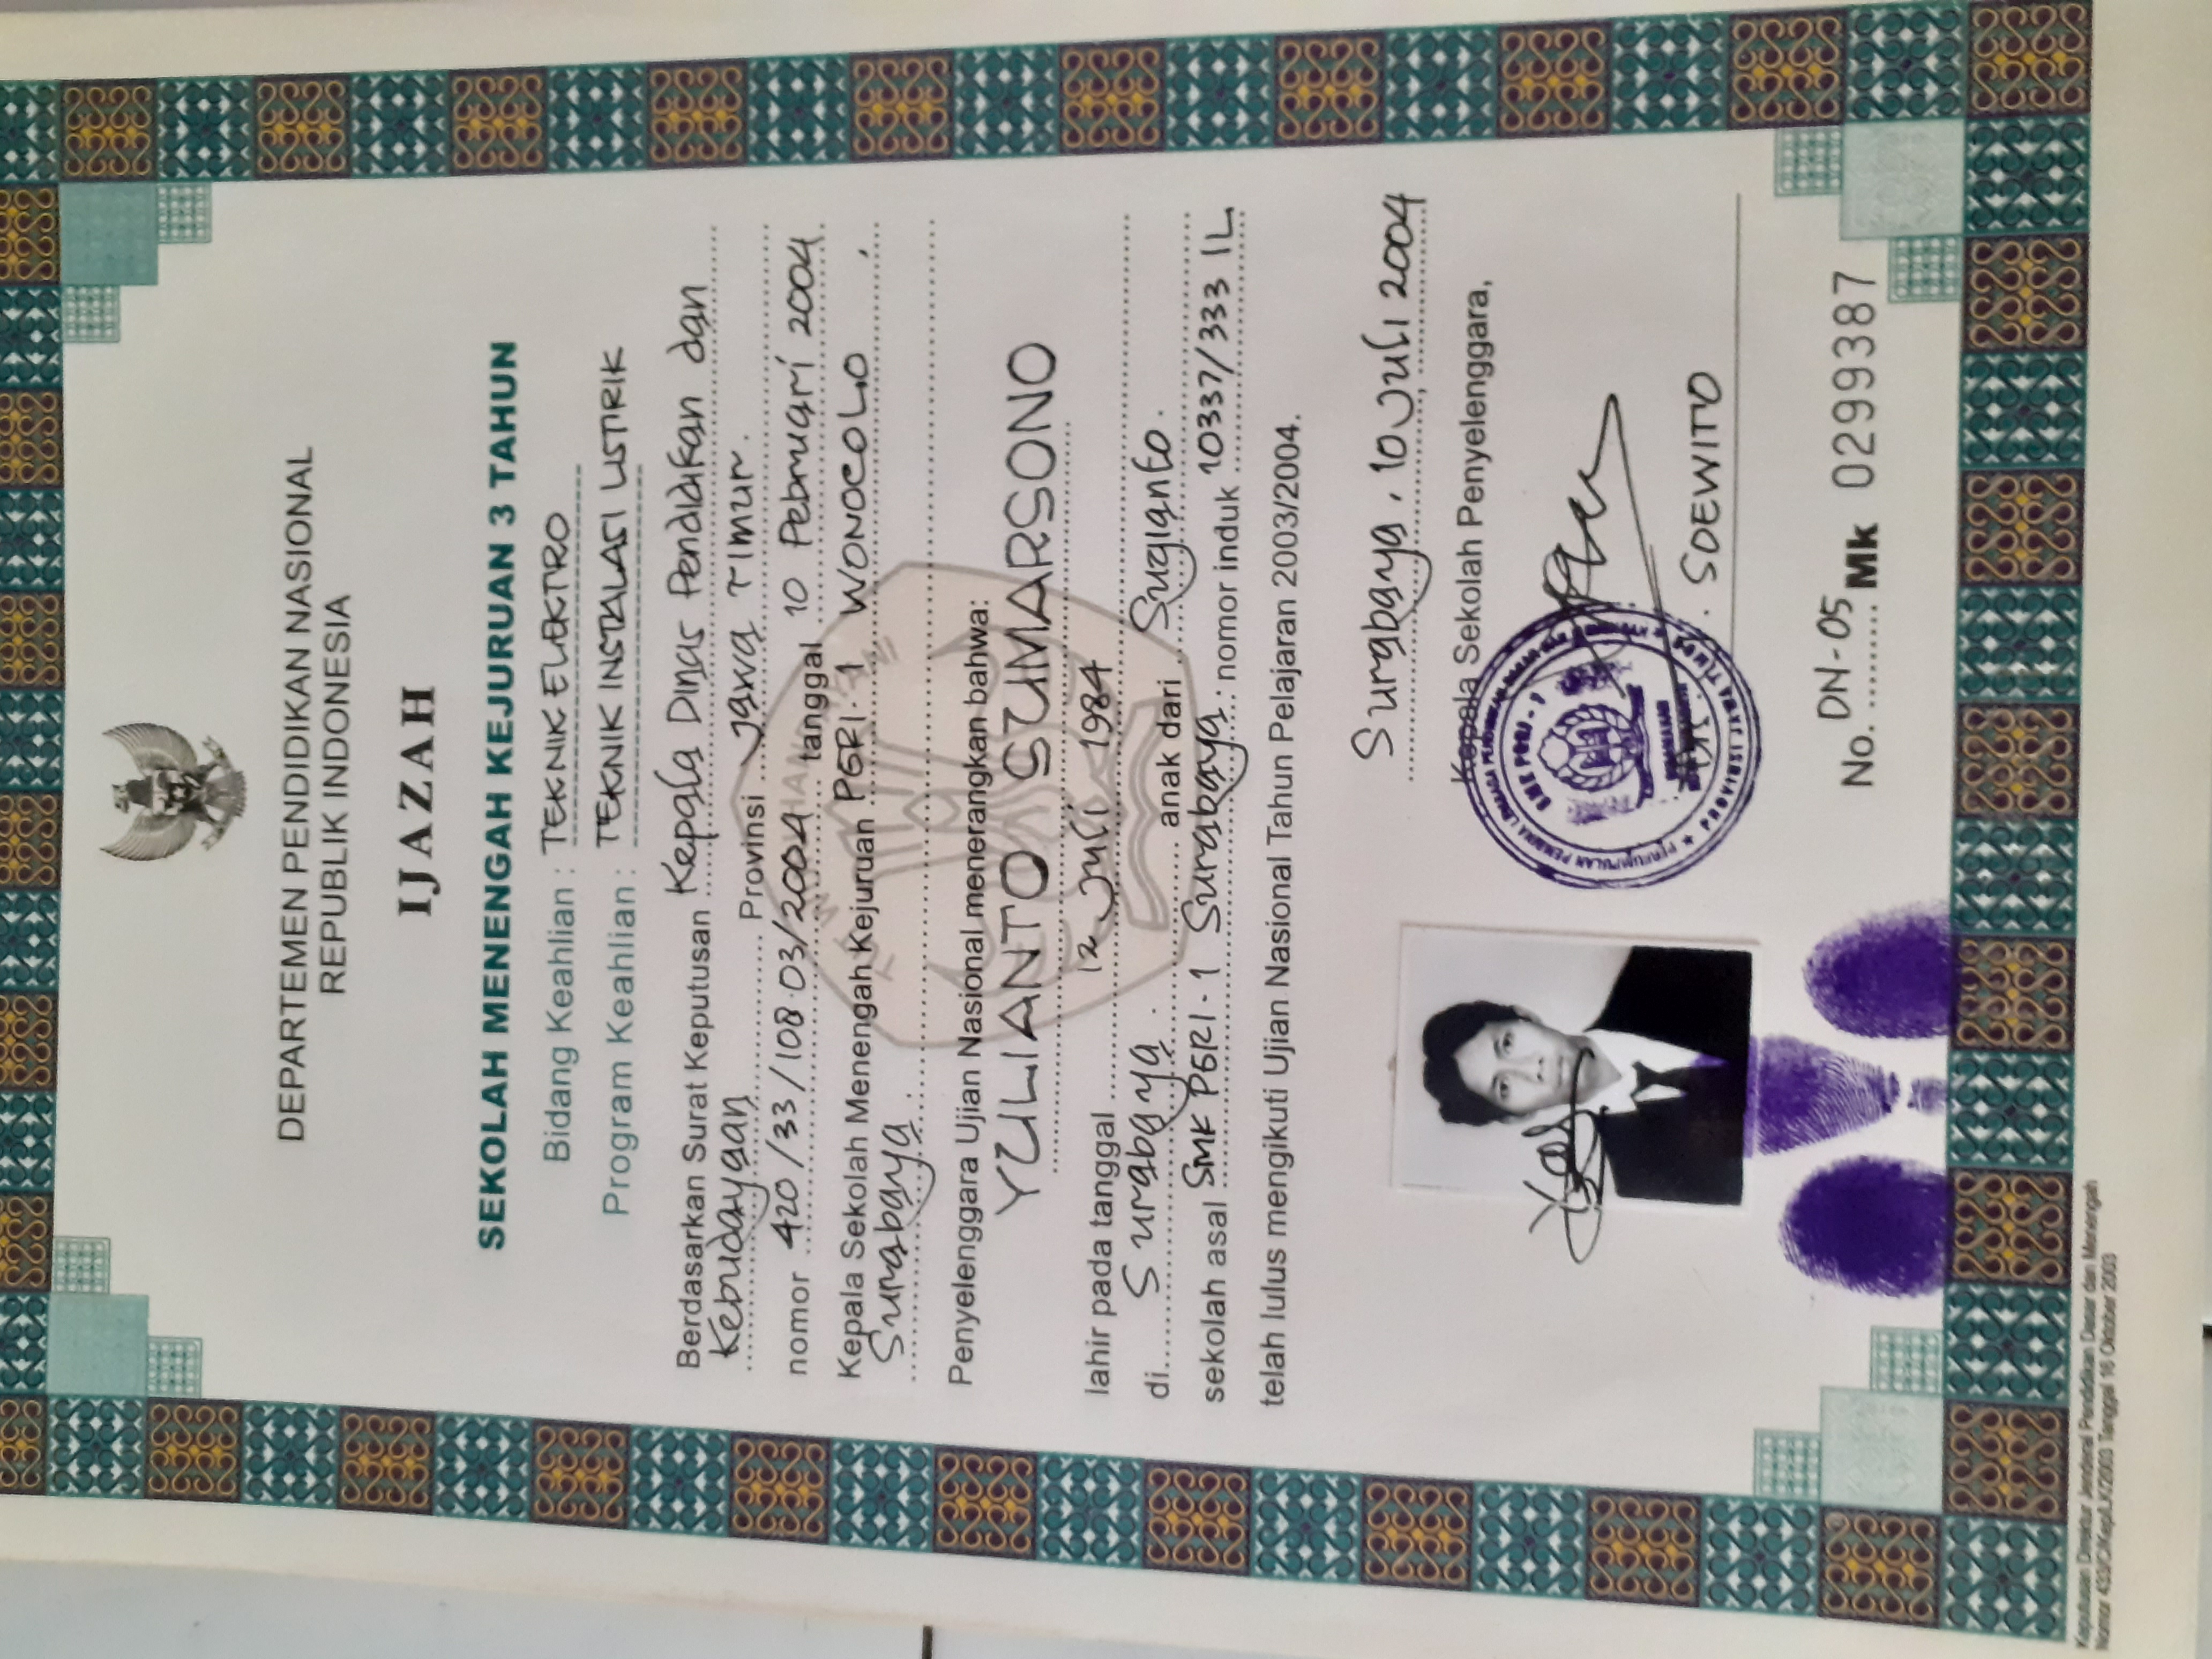 DEPARTEMEN PENDIDIKAN NASIONAL
REPUBLIK INDONESIA
IJAZAH
SEKOLAH MENENGAH KEJURUAN 3 TAHUN
Bidang Keahlian : TEKNIK ELEKTRO
Program Keahlian : TEKNIK INSTALASI LISTIRIK
Berdasarkan Surat Keputusan Kepala Dinas Pendidikan dan
Kebudayaan Provinsi Jawa Timur.
nomor 420/33/108.03/2004 tanggal 10 Pebruari 2004
Kepala Sekolah Menengah Kejuruan PGRI-1 WONOCOLO
Surabaya.
Penyelenggara Ujian Nasional menerangkan bahwa:
YULIANTO SUMARSONO
lahir pada tanggal 12 Juli 1984
di Surabaya. anak dari Sugianto.
sekolah asal SMK PGRI-1 Surabaya. nomor induk 10337/333 IL
telah lulus mengikuti Ujian Nasional Tahun Pelajaran 2003/2004.
Surabaya, 10 Juli 2004
Kepala Sekolah Penyelenggara,
SMK PGRI - 1
PROVINSI JAWA TIMUR
SOEWITO
No. DN-05 Mk 0299387
Keputusan Direktur Jenderal Pendidikan Dasar dan Menengah
Nomor 433/C/Kep/LK/2003 Tanggal 16 Oktober 2003
TUT WURI HANDAYANI